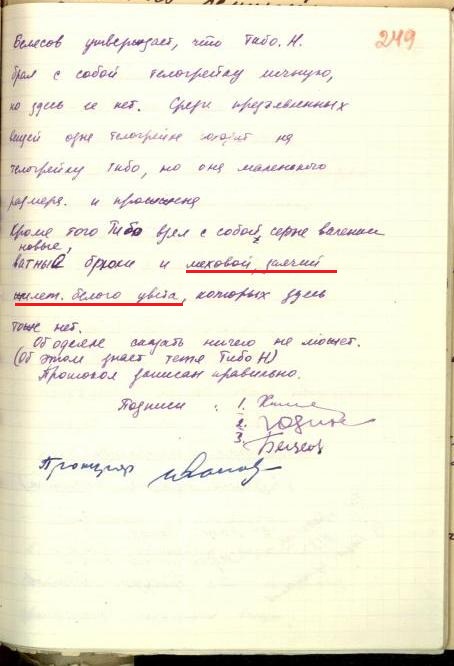 249
Белесов утверждает, что Тибо. Н.
брал с собой телогрейку личную,
но здесь ее нет. Среди предъявленных
вещей одна телогрейка походит на
телогрейку Тибо, но она маленького
размера. и прошитая
Кроме того Тибо взял с собой, серые валенки
новые,
ватные брюки и меховой, заячий
жилет. белого цвета, которых здесь
тоже нет.
Об одеяле сказать ничего не может.
(Об этом знает тетя Тибо Н)
Протокол записан правильно.
Подписи : 1.
2.
3.
Прокурор Иванов